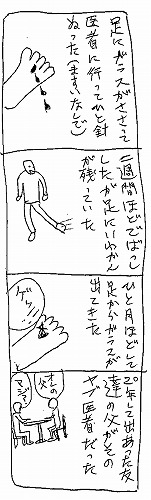 足にガラスがささって
医者に行ってひと針
ぬった(ますいなしで)
一週間ほどでばっし
したが足にいわかん
が残っていた
ひと月ほどして
足からガラスが
出てきた
ゲッ!
20年して出あった友
達の父がその
ヤブ医者だった
父
マジ